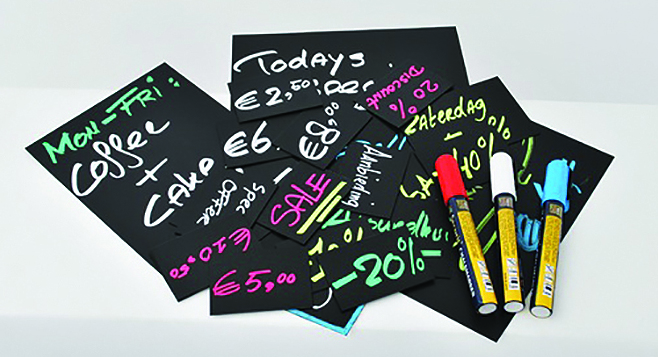 MON-FRI:
Coffee
+
CAKE
TODAYS
€2,50
€6
€8,00
DISCOUNT
20%
Aanbieding
SALE
Spec
OFFER
€10,50
€5,00
-20%-
ZATERDAG